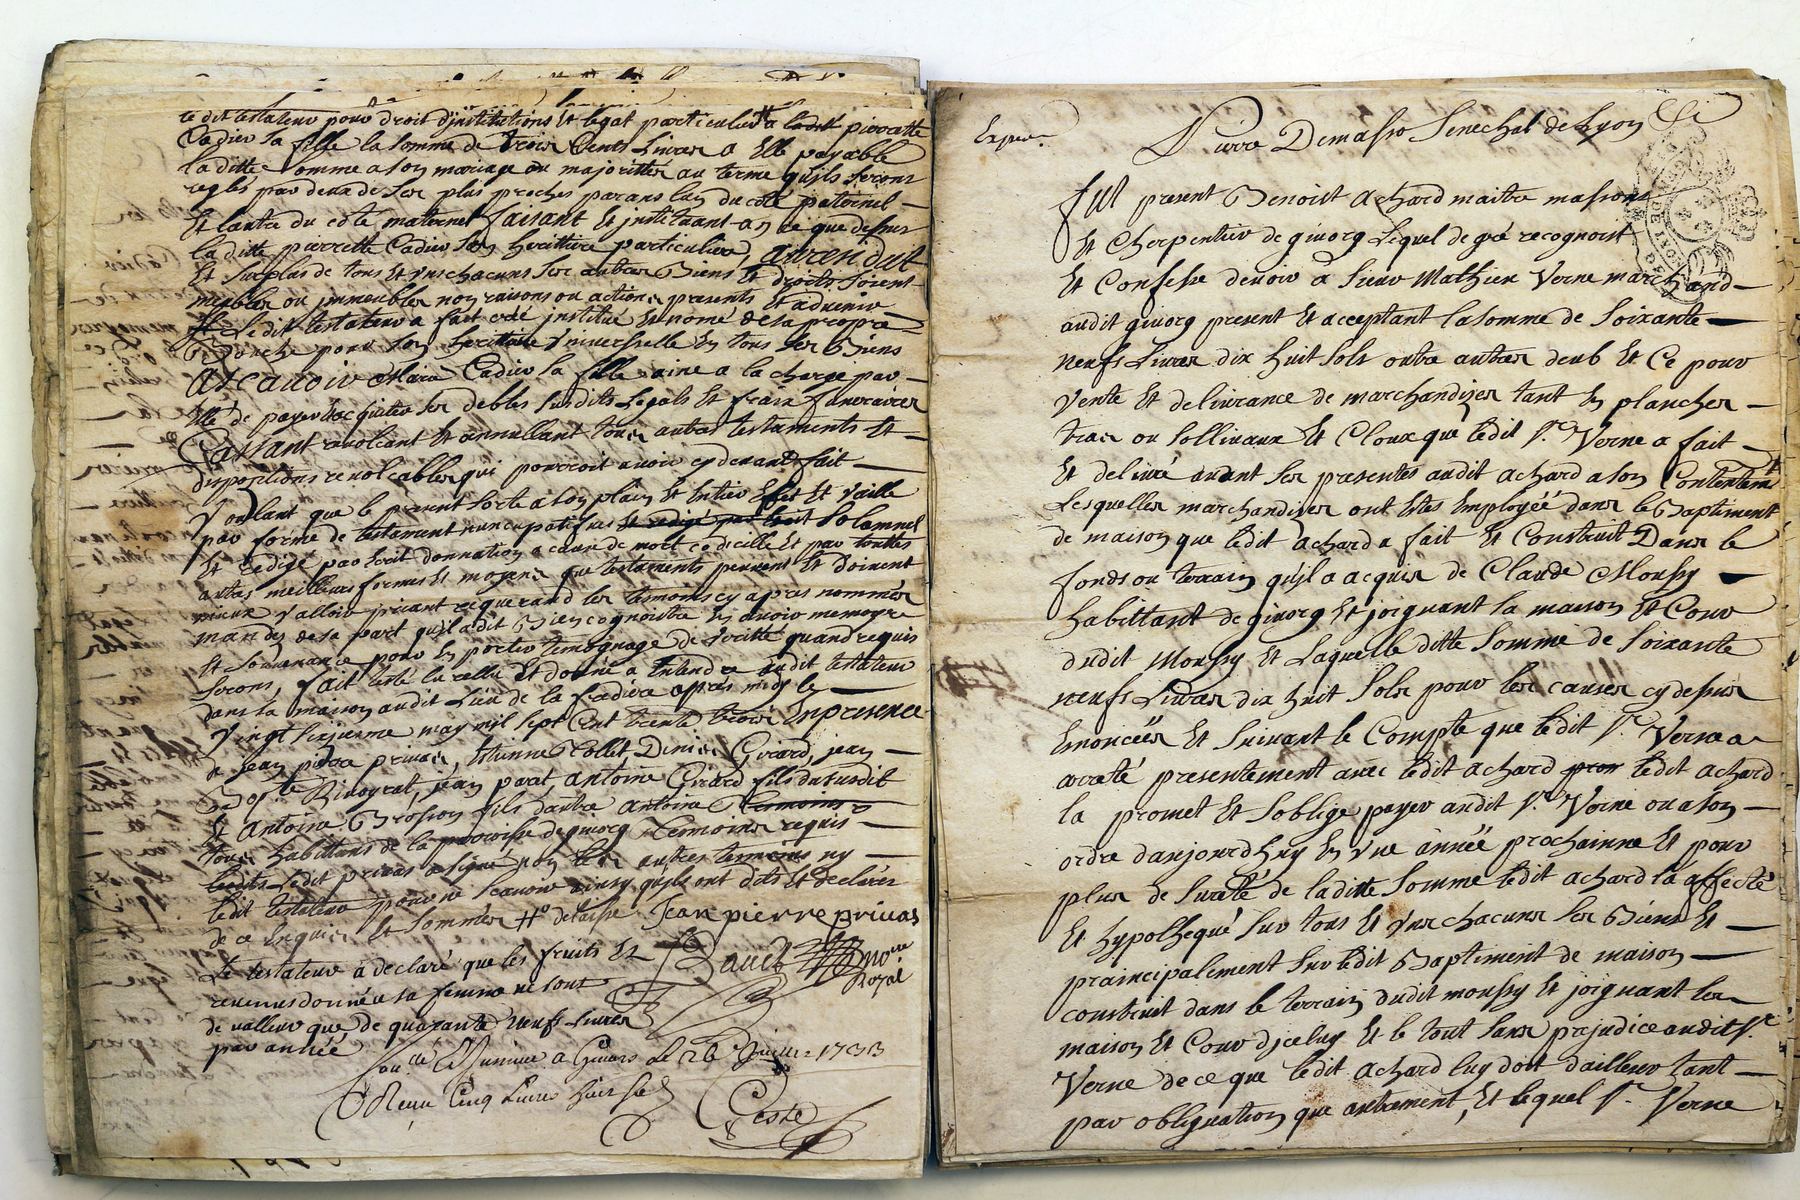 le dit testateur pour droit d'institutions Et legat particulier # a ladite pierrette
Cadier sa fille la somme de trois Cents Livres a Elle payable
laditte somme a son mariage ou majoritter au terme quils seronts
reglés par deux de ses plus proches parans lun du coté paternel
Et lautre du coté maternel faisant Et instituant en ce que dessus
laditte pierrette Cadier son herittiere particuliere, aurendut
Et surplus de tous Et uns chacuns ses autres Biens Et droits soient
meubles ou immeubles noms raisons ou actions presents Et advenir
ledit testateur a fait créé institué Et nomé de sa propre
Bouche pour son herittiere universelle En tous ses Biens
ascavoir Marie Cadier sa fille aine a la charge par
Elle de payer Et acquiter ses debtes susdits Legats Et fraix funeraires
Cassant revolcant Et annullant tous autres testaments Et
dispositions revolcables qui pourroit avoir cy devant fait
Voullant que le present sorte a son plain Et Entier Effet Et vaille
par forme de testament nuncupatif solamnel
Et redigé par Ecrit donnation a cause de mort codicille Et par touttes
autres meilleurs formes Et moyens que testaments peuvent Et doivent
mieux valloir priant requerand les temoins cy apres nommés
mandés de sa part qu'il a dit Bien cognoistre En avoir memoyre
Et souvenance pour En porter temognage de veritté quand requis
seront, fait leu relu Et donné a Entendre audit testateur
dans sa maison audit Lieu de la fredière apres midy le
Vingt sixjeme may mil sept Cent trente trois En presence
de jean pierre privas, Etienne Collet, Denis Girard, jean
Bapte Rivoyrat, jean parat, antoine Girard fils du susdit
Et antoine Brosson fils dautre antoine temoins
tous habittans de la parroisse de givorg temoins requis
ledit privas a signé non les autres temoins ny
ledit testateur pour ne scavoir ainsy quils ont dits Et declarés
de ce Enquis Et sommés # delaisse Jean pierre privas
Le testateur a declaré que les fruits Et
revenus donné a sa femme ne sont
de valleur que de quarante neufs Livres
par année
Royal
a Givors le 26 1733
Reçu Cinq Livres huit sols
Coste
Pierre Demasso Senechal de Lyon
Exped.
fut present Benoist Achard maitre masson
Et Cherpentier de givorg Lequel de gré recognoist
Et Confesse devoir a sieur Mathieu Verne marchand
audit givorg present Et acceptant la somme de Soixante
neufs Livres dix huit sols outre autres deub Et Ce pour
vente Et delivrance de marchandizes tant En plancher
trais ou sollivaux Et Cloux que ledit Sr. Verne a fait
Et delivré avant ses presentes audit achard a son Contentemt
Lesquelles marchandizes ont Etes Employéé dans le Baptiment
de maison que ledit achard a fait Et Construit Dans le
fonds ou terrain qu'il a acquis de Claude Moussy
habittant de givorg Et joignant la maison Et Cour
dudit Moussy Et Laquelle ditte somme de Soixante
neufs Livres dix huit sols pour les causes cy dessus
Enoncéés Et suivant le Compte que ledit Sr. Verne a
arreté presentement avec ledit achard pour ledit achard
la promet Et soblige payer audit Sr. Verne ou a son
ordre daujourdhuy En une année prochainne Et pour
plus de sureté de laditte somme ledit achard la affecté
Et hypothequé sur tous Et uns chacuns ses Biens Et
praincipalement sur ledit Baptiment de maison
construit dans le terrain dudit moussy Et joignant les
maison Et Cour djceluy Et le tout sans prejudice audit Sr
Verne de ce que ledit achard luy doit dailleur tant
par obligation que autrament, Et lequel Sr. Verne